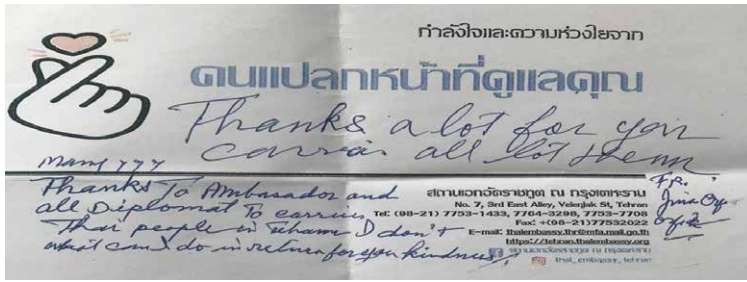 กำลังใจและความห่วงใยจาก
คนแปลกหน้าที่ดูแลคุณ
Thanks a lot for you
carries all lot them
many yyy
Thanks To Ambasador and
all Diplomat To carries
Thai people in I don't
what can I do in return for you kindness
สถานเอกอัครราชทูต ณ กรุงเตหะราน
No. 7, 3rd East Alley, Velenjak St, Tehran
Tel: (98-21) 7753-1433, 7764-3298, 7753-7708
Fax: +(98-21)77532022
E-mail: thaiembassy.thr@mfa.mail.go.th
https://tehran.thaiembassy.org
สถานเอกอัครราชทูต ณ กรุงเตหะราน
thai_embassy_tehran